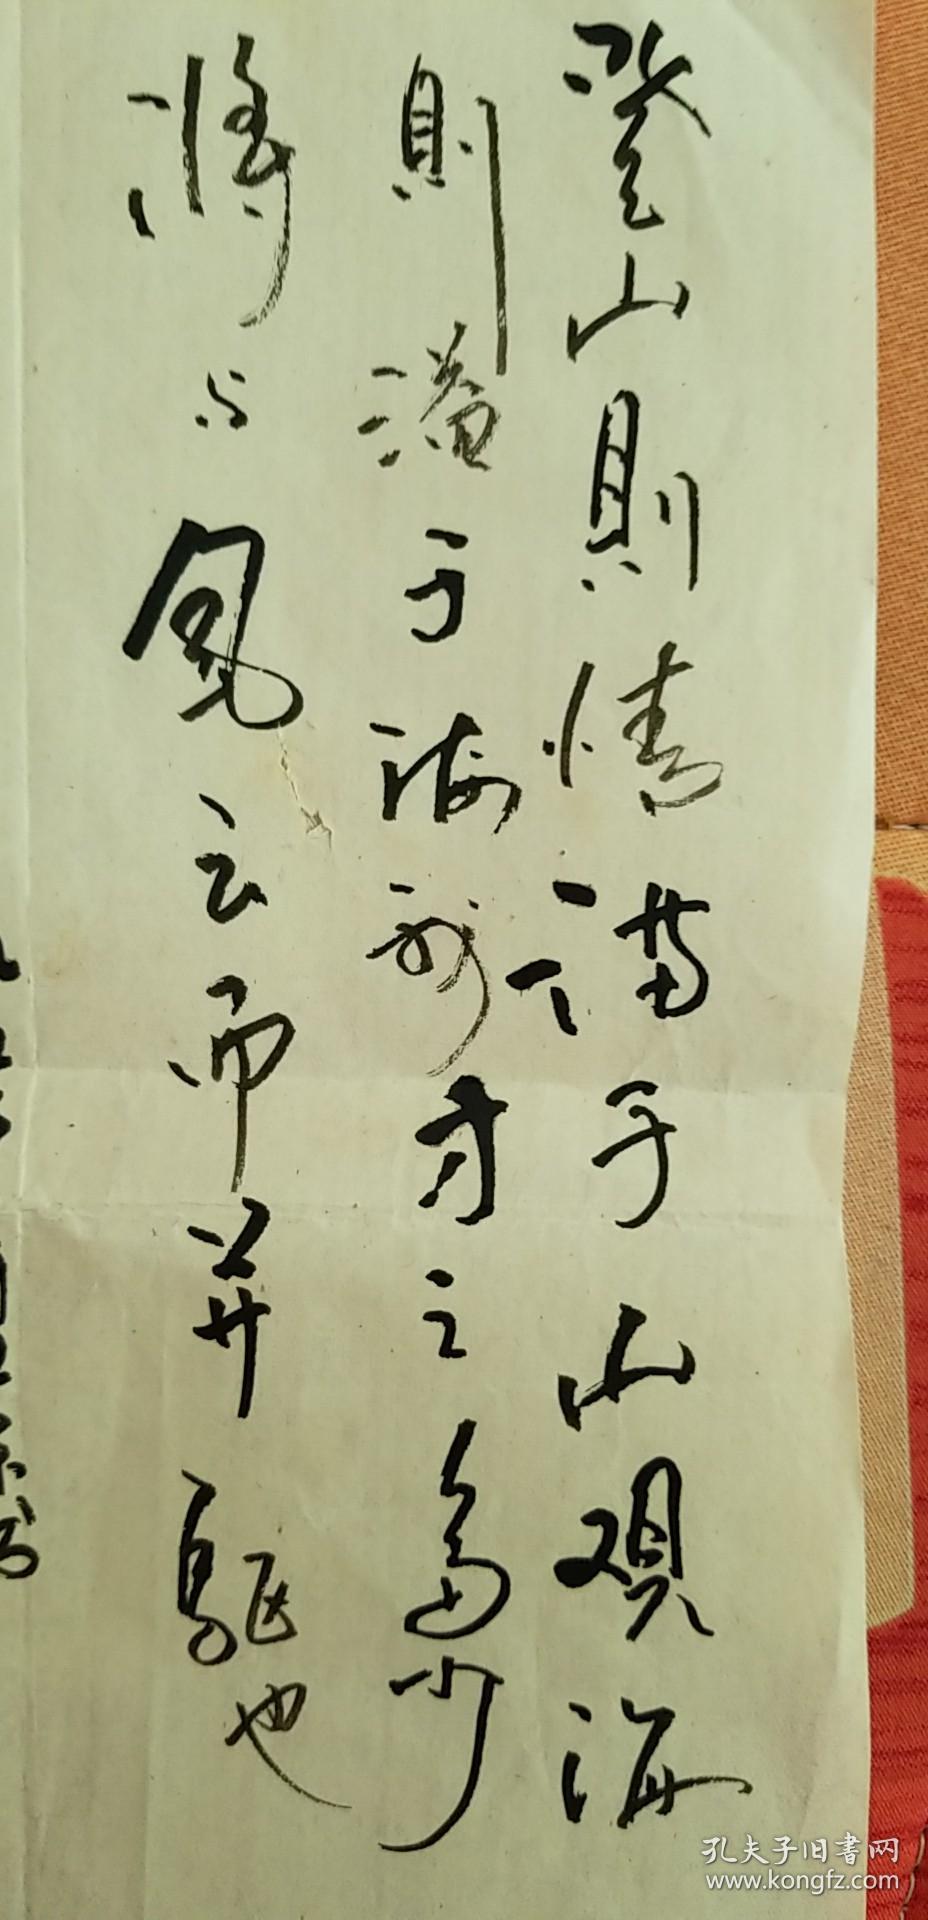 登山則情满于山观海
則溢于海我才之多少
將与風云而并驱也
孔夫子旧書网
www.kongfz.com